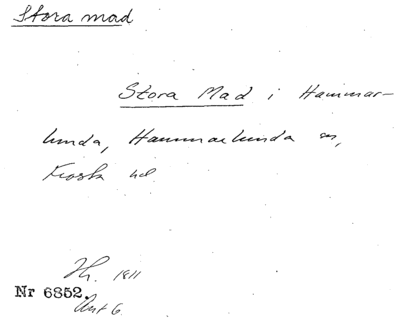 Stora mad
Stora Mad i Hammar-
lunda, Hammarlunda sn,
Frosta hd
1811
Nr 6852.
Akt 6